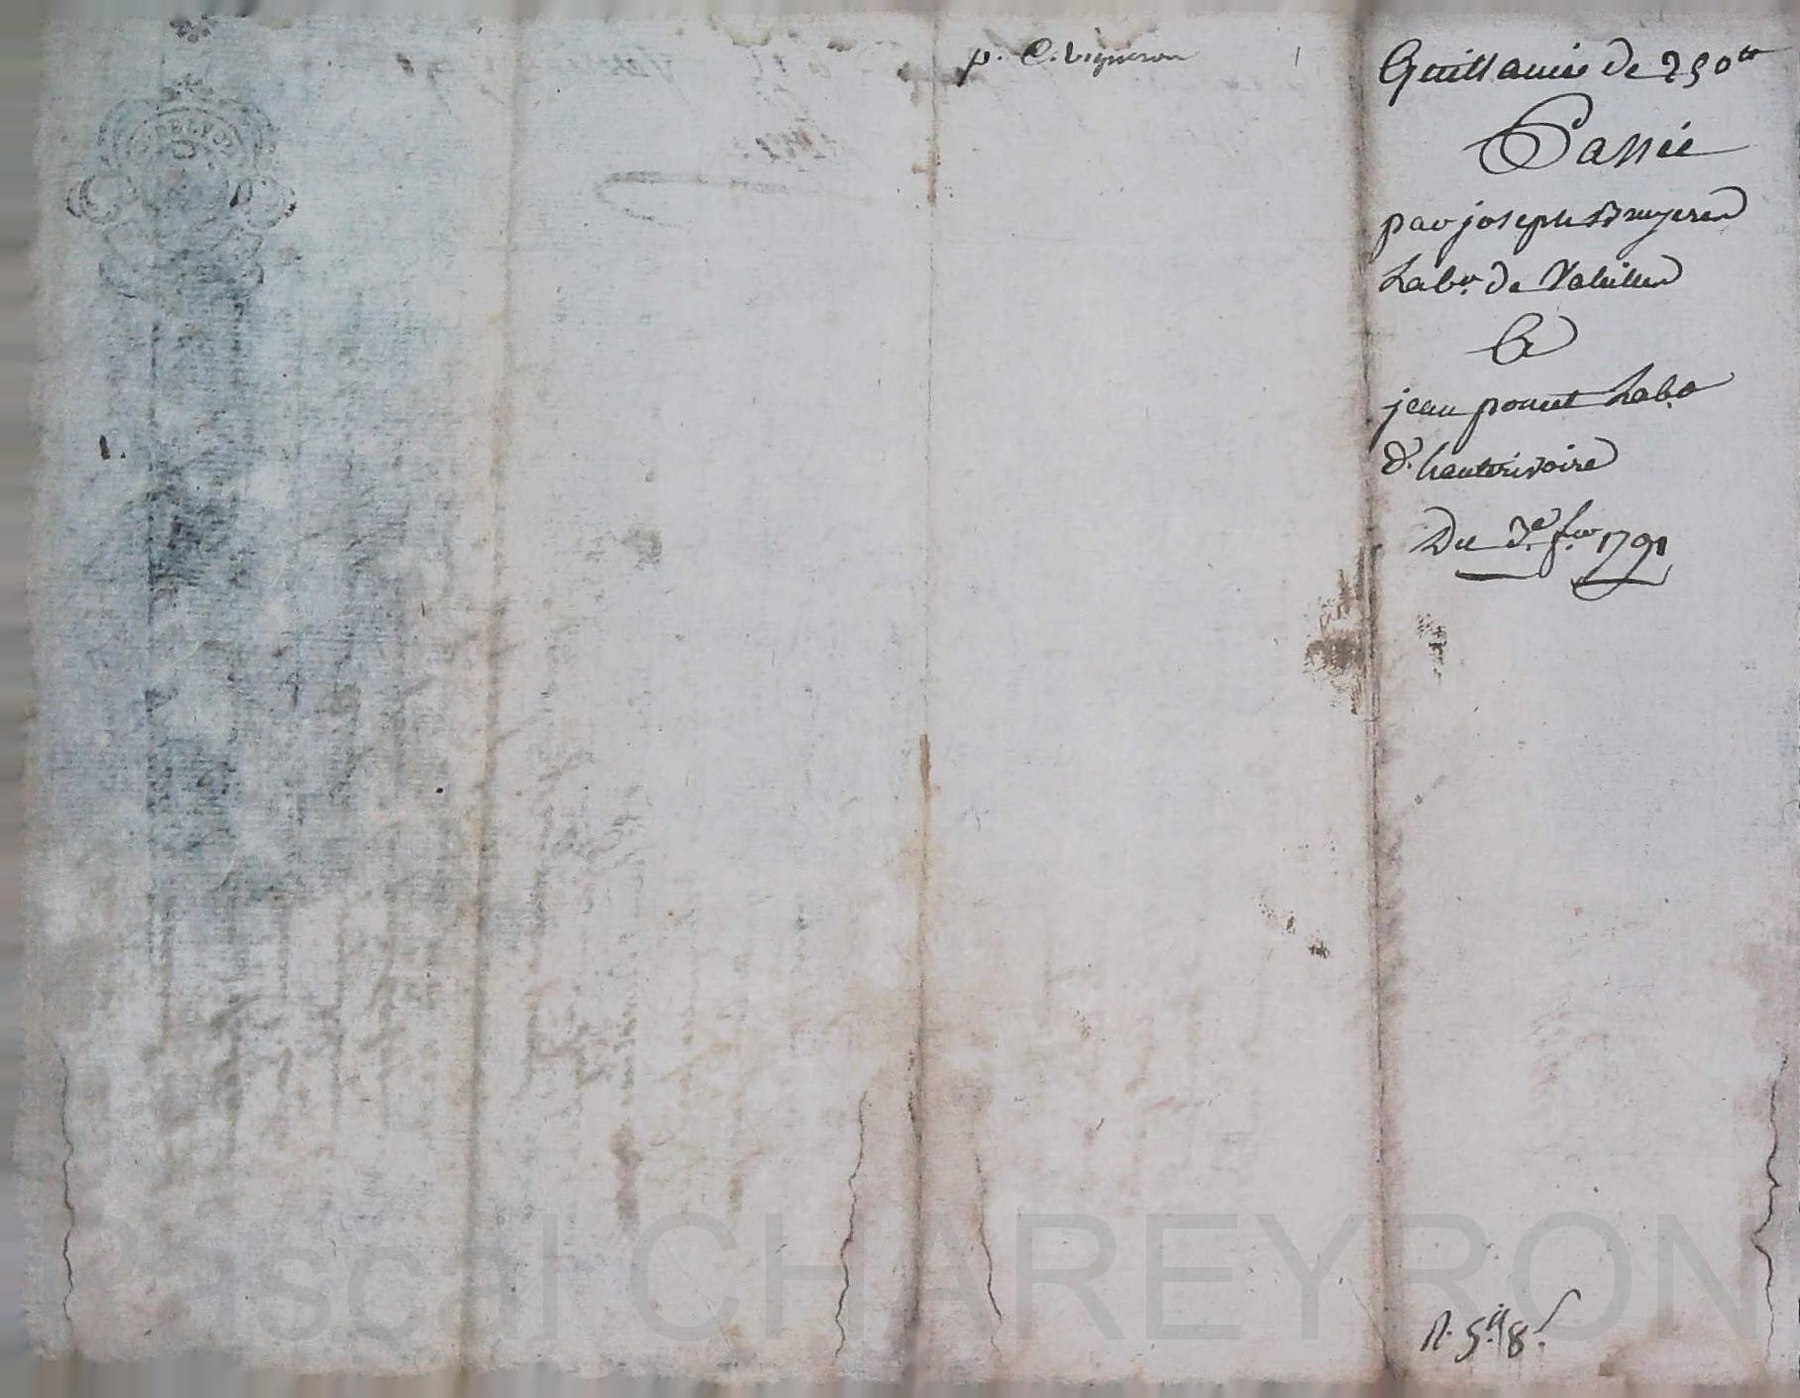 p. C. vigneron
Quittance de 250 tt
Passée
par joseph Bruyere
Labr. de Valeille
A
jean poncet Labo
d'hauterivoire
Du 3e. fer 1791
R. 5tt 8s
Pascal CHAREYRON